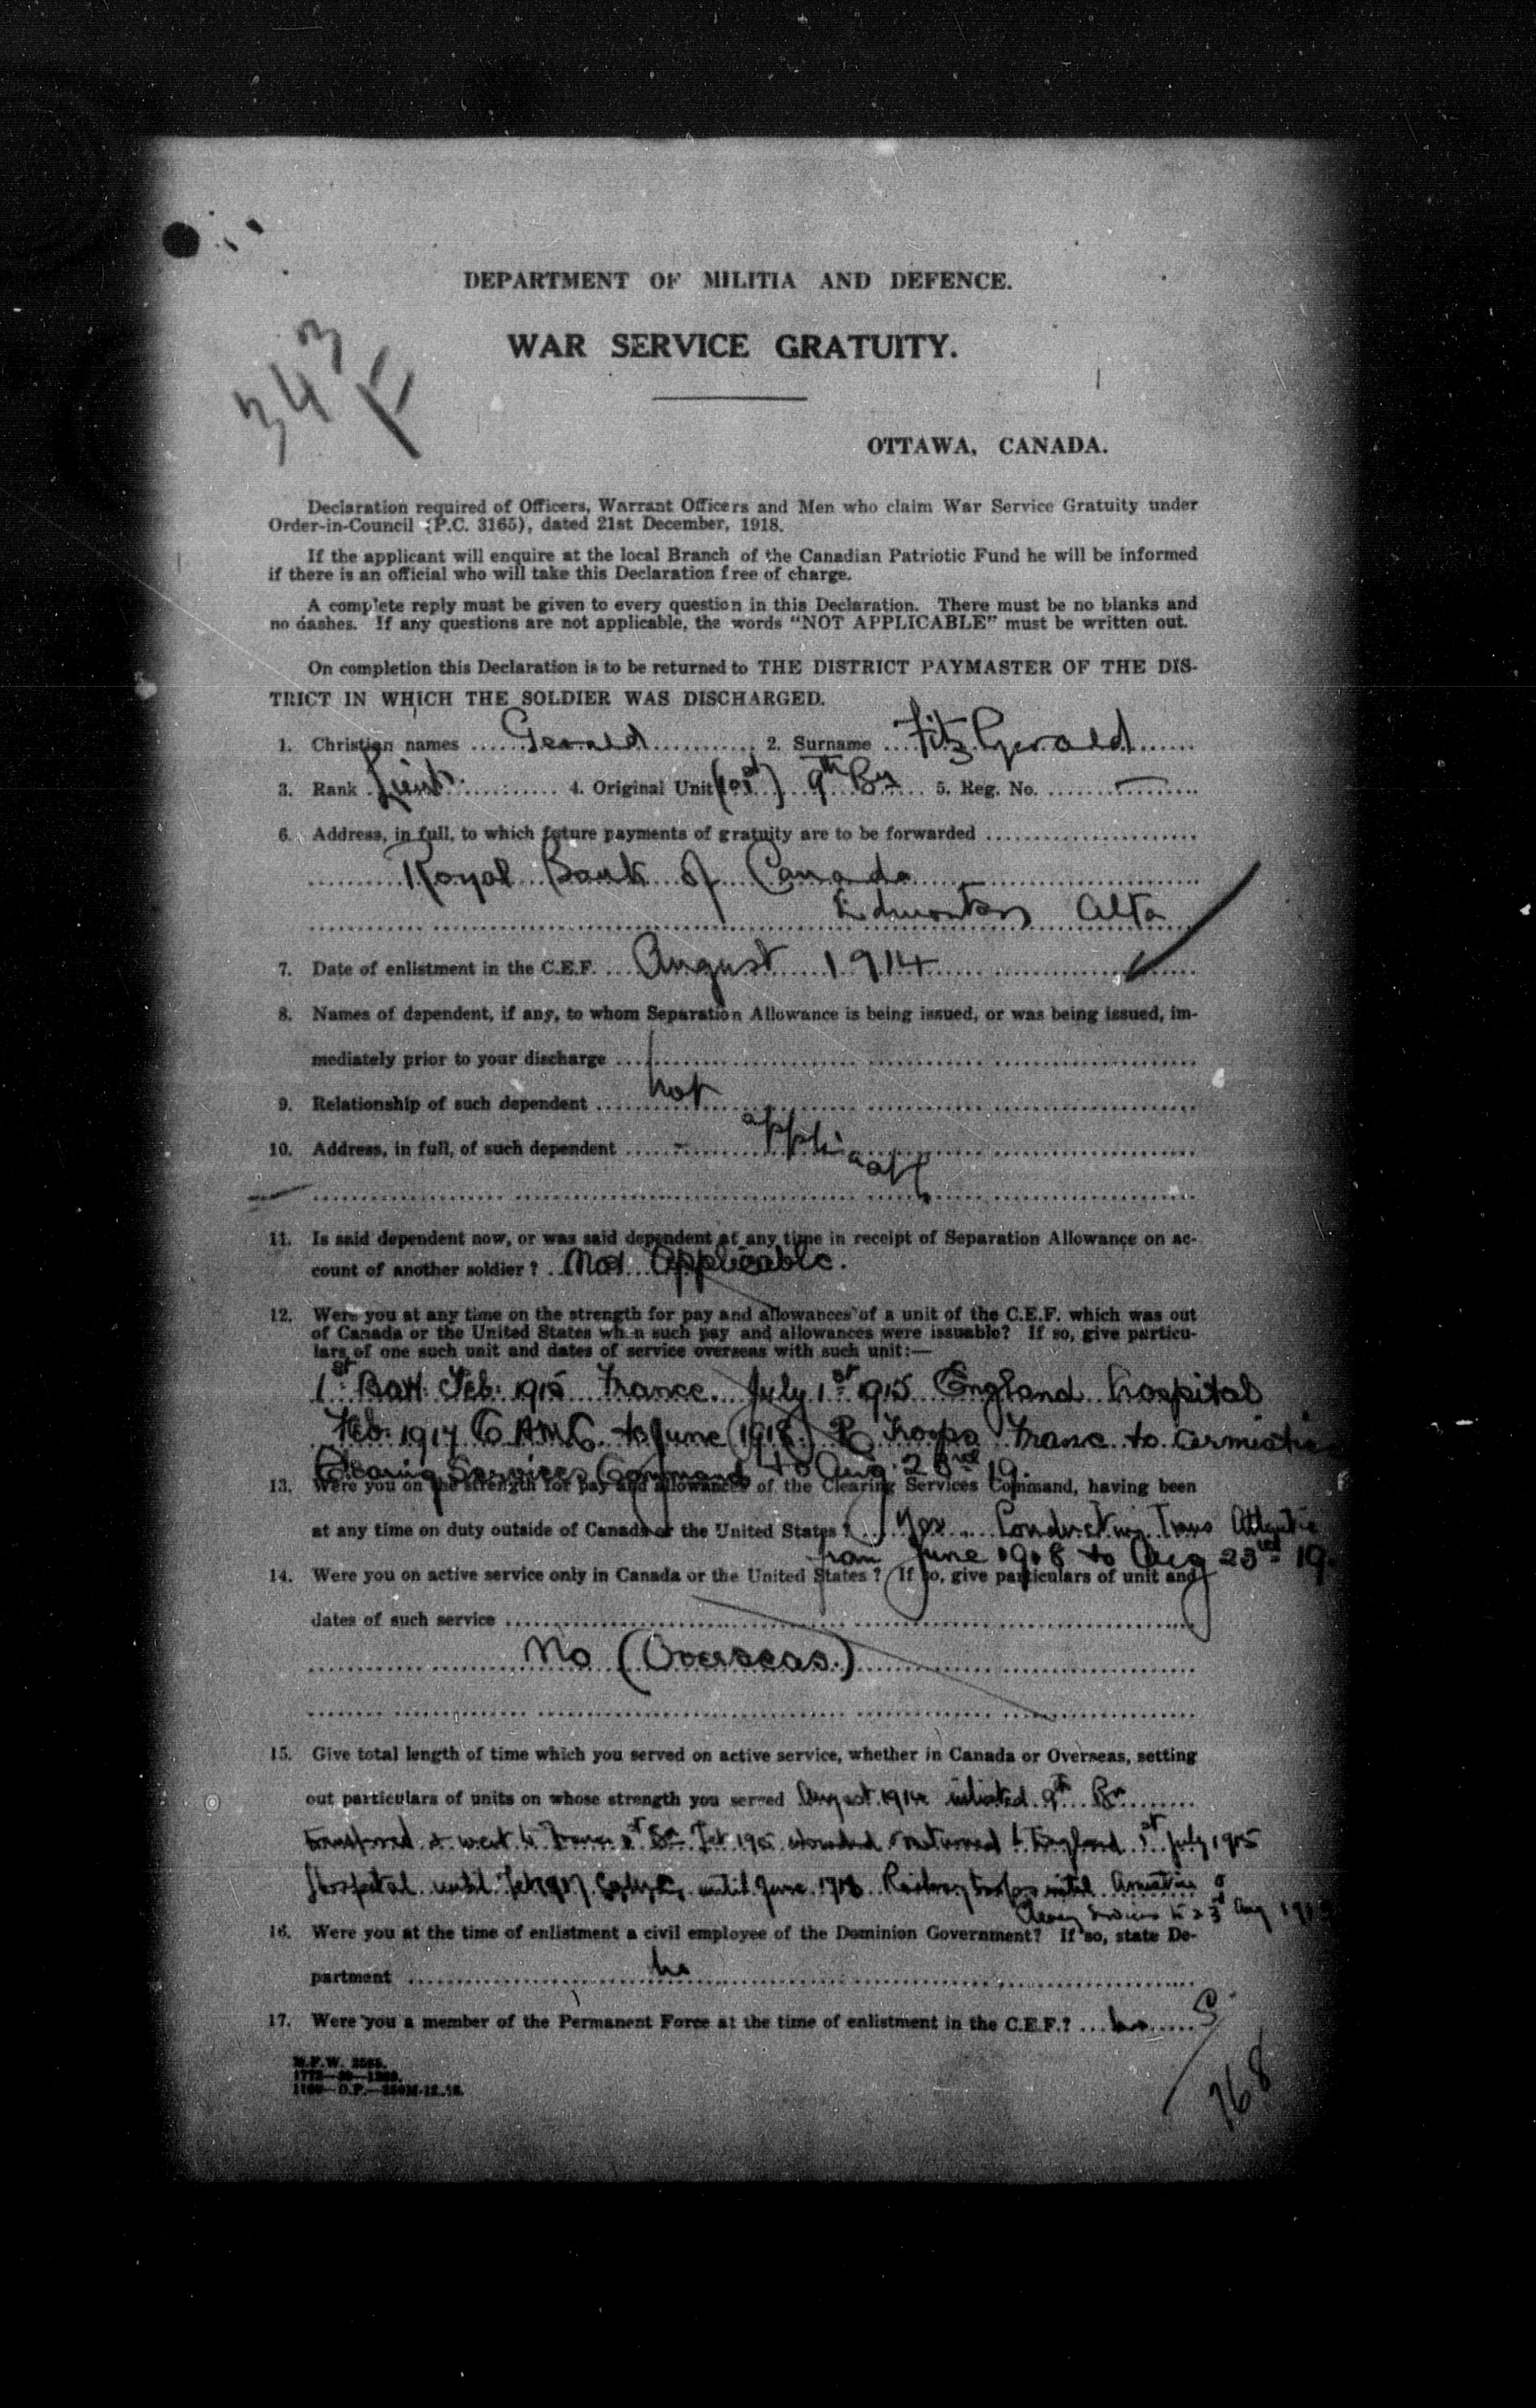 DEPARTMENT OF MILITIA AND DEFENCE.
WAR SERVICE GRATUITY.
343
F
OTTAWA, CANADA.
Declaration required of Officers, Warrant Officers and Men who claim War Service Gratuity under
Order-in-Council (P.C. 3165), dated 21st December, 1918.
If the applicant will enquire at the local Branch of the Canadian Patriotic Fund he will be informed
if there is an official who will take this Declaration free of charge.
A complete reply must be given to every question in this Declaration. There must be no blanks and
no dashes. If any questions are not applicable, the words "NOT APPLICABLE" must be written out.
On completion this Declaration is to be returned to THE DISTRICT PAYMASTER OF THE DIS-
TRICT IN WHICH THE SOLDIER WAS DISCHARGED.
1. Christian names Gerald 2. Surname FitzGerald
3. Rank Lieut. 4. Original Unit 9th Bn 5. Reg. No. —
6. Address, in full, to which future payments of gratuity are to be forwarded
Royal Bank of Canada
Edmonton Alta
7. Date of enlistment in the C.E.F. August 1914
8. Names of dependent, if any, to whom Separation Allowance is being issued, or was being issued, im-
mediately prior to your discharge
9. Relationship of such dependent not
10. Address, in full, of such dependent applicable
11. Is said dependent now, or was said dependent at any time in receipt of Separation Allowance on ac-
count of another soldier? Not Applicable.
12. Were you at any time on the strength for pay and allowances of a unit of the C.E.F. which was out
of Canada or the United States when such pay and allowances were issuable? If so, give particu-
lars of one such unit and dates of service overseas with such unit:—
1st Batt. Feb. 1915 France. July 1st 1915 England hospital
Feb. 1917 C.A.M.C. to June 1918. Troops France to armistice
Clearing Services Command to Aug. 23rd 19.
13. Were you on the strength for pay and allowances of the Clearing Services Command, having been
at any time on duty outside of Canada or the United States? Yes Conducting Trans Atlantic
from June 1918 to Aug 23rd 19.
14. Were you on active service only in Canada or the United States? If so, give particulars of unit and
dates of such service
No (Overseas.)
15. Give total length of time which you served on active service, whether in Canada or Overseas, setting
out particulars of units on whose strength you served August 1914 enlisted 9th Bn
transferred & went to France 1st Bn Feb 1915 wounded & returned to England 1st July 1915
Hospital until Feb 1917 C.A.M.C. until June 1918 Railway troops until Armistice &
Clearing Services to 23rd Aug 191
16. Were you at the time of enlistment a civil employee of the Dominion Government? If so, state De-
partment no
17. Were you a member of the Permanent Force at the time of enlistment in the C.E.F.? no
768
M.F.W. 2595.